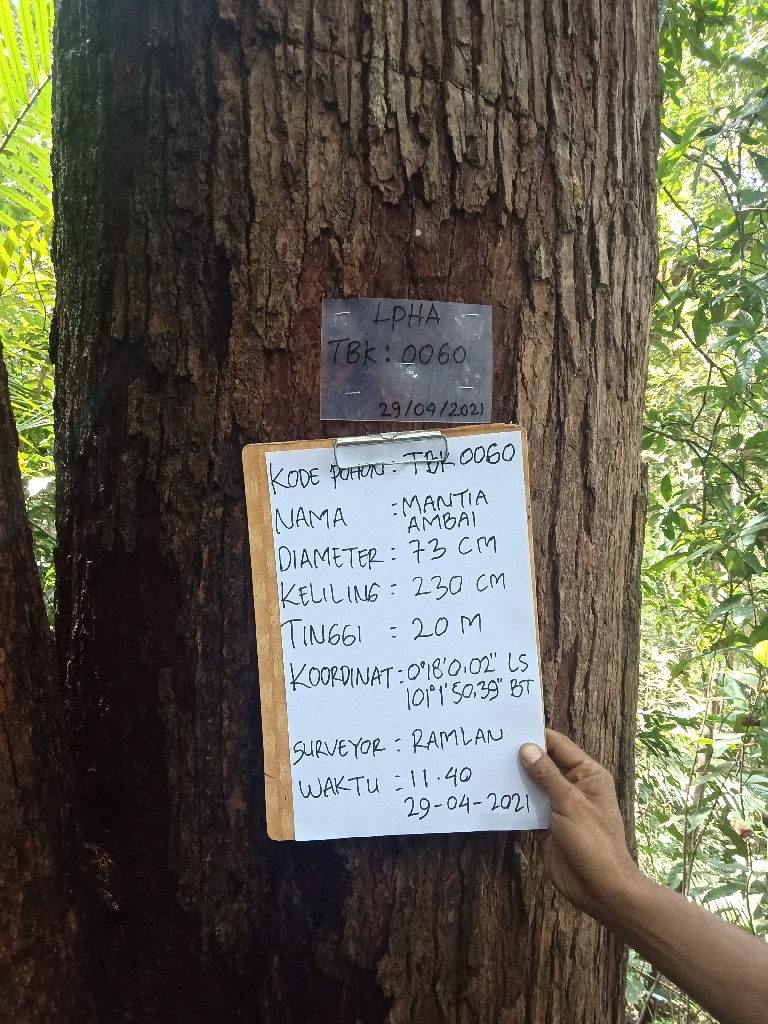 LPHA
TBK : 0060
29/04/2021
KODE POHON : TBK 0060
NAMA : MANTIA
AMBAI
DIAMETER : 73 CM
KELILING : 230 CM
TINGGI : 20 M
KOORDINAT : 0°18'0.02" LS
101°1'50.39" BT
SURVEYOR : RAMLAN
WAKTU : 11.40
29-04-2021